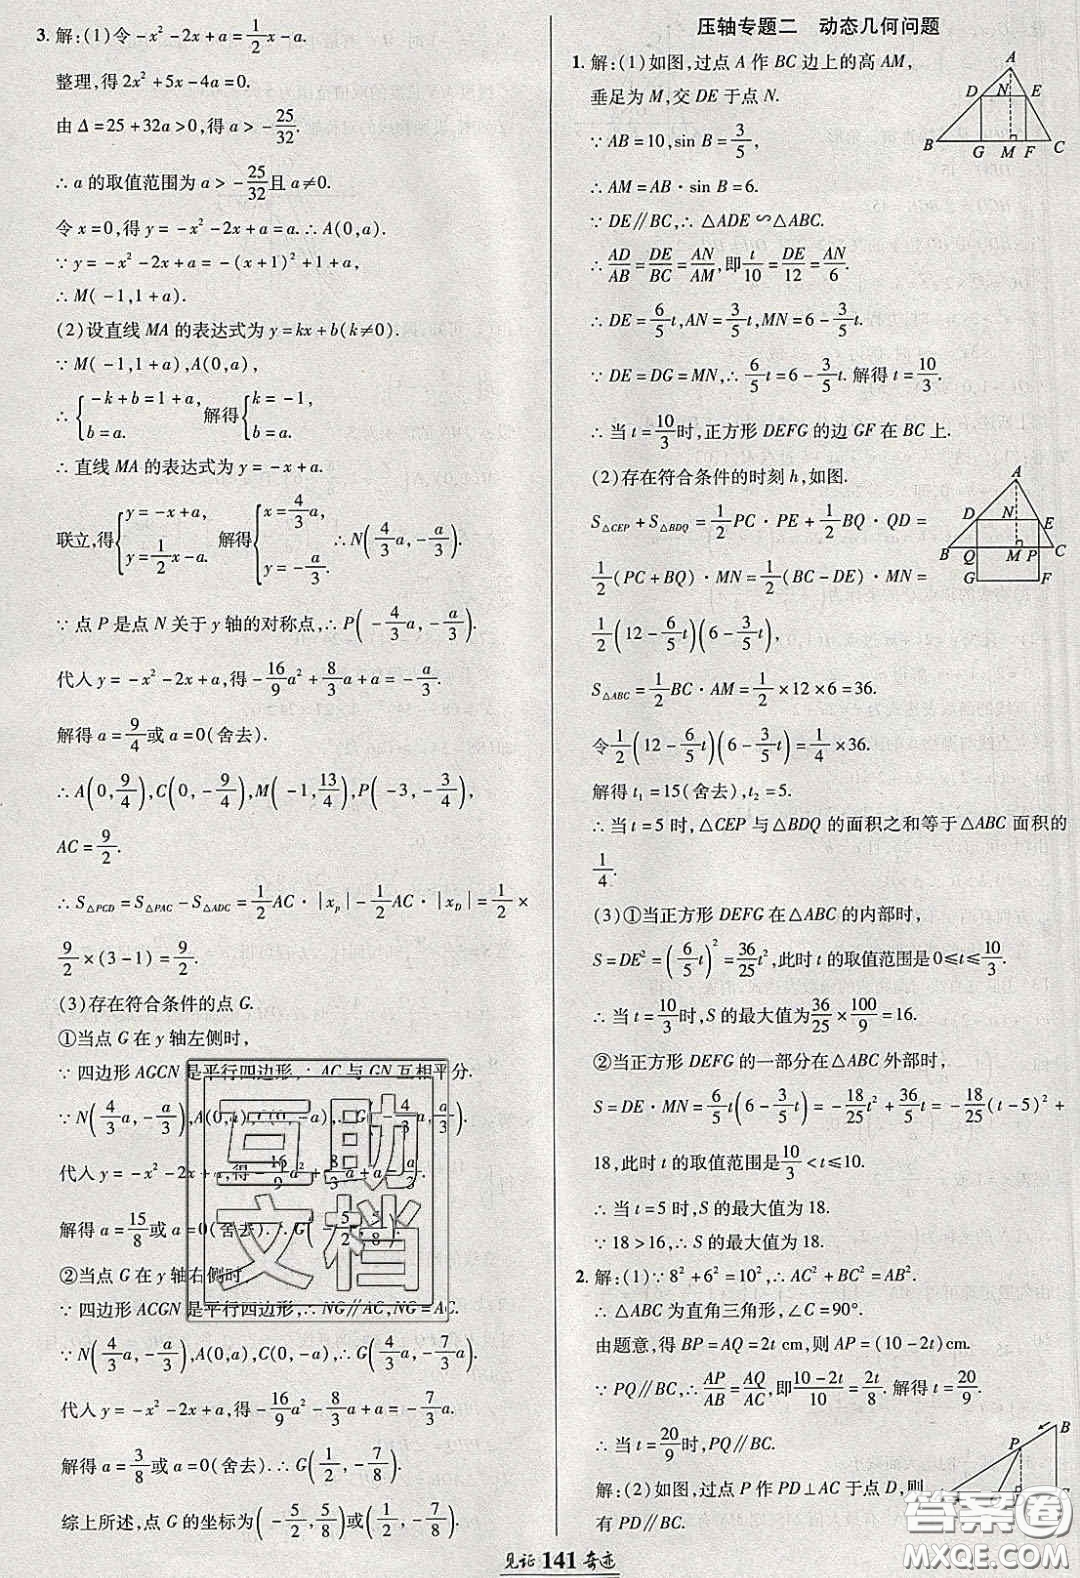 3. 解:(1)令 -x² - 2x + a = 1/2 x - a.
整理,得 2x² + 5x - 4a = 0.
由 Δ = 25 + 32a > 0,得 a > -25/32.
∴ a 的取值范围为 a > -25/32 且 a ≠ 0.
令 x = 0,得 y = -x² - 2x + a = a. ∴ A(0,a).
∵ y = -x² - 2x + a = -(x+1)² + 1 + a,
∴ M(-1,1+a).
(2)设直线 MA 的表达式为 y = kx + b(k≠0).
∵ M(-1,1+a),A(0,a),
∴ { -k + b = 1 + a, b = a. 解得 { k = -1, b = a.
∴ 直线 MA 的表达式为 y = -x + a.
联立,得 { y = -x + a, y = 1/2 x - a. 解得 { x = 4/3 a, y = -a/3. ∴ N(4/3 a, -a/3).
∵ 点 P 是点 N 关于 y 轴的对称点,∴ P(-4/3 a, -a/3).
代入 y = -x² - 2x + a,得 -a/3 = -16/9 a² + 8/3 a + a.
解得 a = 9/4 或 a = 0(舍去).
∴ A(0, 9/4), C(0, -9/4), M(-1, 13/4), P(-3, -3/4),
AC = 9/2.
∴ S△PCD = S△PAC - S△ADC = 1/2 AC · |xp| - 1/2 AC · |xD| = 1/2 ×
9/2 × (3-1) = 9/2.
(3)存在符合条件的点 G.
①当点 G 在 y 轴左侧时,
∵ 四边形 AGCN 是平行四边形,∴ AC 与 GN 互相平分.
∵ N(4/3 a, -a/3),A(0,a),C(0,-a),∴ G(-4/3 a, a/3).
代入 y = -x² - 2x + a,得 -16/9 a² + 8/3 a + a = a/3.
解得 a = 15/8 或 a = 0(舍去). ∴ G(-5/2, 5/8).
②当点 G 在 y 轴右侧时,
∵ 四边形 ACGN 是平行四边形,∴ NG∥AC,NG = AC.
∵ N(4/3 a, -a/3),A(0,a),C(0,-a),∴ G(4/3 a, -7/3 a).
代入 y = -x² - 2x + a,得 -16/9 a² - 8/3 a + a = -7/3 a.
解得 a = 3/8 或 a = 0(舍去). ∴ G(1/2, -7/8).
综上所述,点 G 的坐标为(-5/2, 5/8)或(1/2, -7/8).
压轴专题二 动态几何问题
1. 解:(1)如图,过点 A 作 BC 边上的高 AM,
垂足为 M,交 DE 于点 N.
∵ AB = 10,sin B = 3/5,
∴ AM = AB · sin B = 6.
∵ DE∥BC,∴ △ADE∽△ABC.
∴ AD/AB = DE/BC = AN/AM,即 t/10 = DE/12 = AN/6.
∴ DE = 6/5 t,AN = 3/5 t,MN = 6 - 3/5 t.
∵ DE = DG = MN,∴ 6/5 t = 6 - 3/5 t. 解得 t = 10/3.
∴ 当 t = 10/3 时,正方形 DEFG 的边 GF 在 BC 上.
A
D N E
B G M F C
(2)存在符合条件的时刻 h,如图.
S△CEP + S△BDQ = 1/2 PC · PE + 1/2 BQ · QD =
1/2 (PC + BQ) · MN = 1/2 (BC - DE) · MN =
1/2 (12 - 6/5 t)(6 - 3/5 t),
A
D N E
B Q M P C
G F
S△ABC = 1/2 BC · AM = 1/2 × 12 × 6 = 36.
令 1/2 (12 - 6/5 t)(6 - 3/5 t) = 1/4 × 36.
解得 t₁ = 15(舍去),t₂ = 5.
∴ 当 t = 5 时,△CEP 与 △BDQ 的面积之和等于 △ABC 面积的
1/4.
(3)①当正方形 DEFG 在 △ABC 的内部时,
S = DE² = (6/5 t)² = 36/25 t²,此时 t 的取值范围是 0≤t≤10/3.
∴ 当 t = 10/3 时,S 的最大值为 36/25 × 100/9 = 16.
②当正方形 DEFG 的一部分在 △ABC 外部时,
S = DE · MN = 6/5 t(6 - 3/5 t) = -18/25 t² + 36/5 t = -18/25 (t-5)² +
18,此时 t 的取值范围是 10/3 < t ≤ 10.
∴ 当 t = 5 时,S 的最大值为 18.
∵ 18 > 16,∴ S 的最大值为 18.
2. 解:(1)∵ 8² + 6² = 10²,∴ AC² + BC² = AB².
∴ △ABC 为直角三角形,∠C = 90°.
由题意,得 BP = AQ = 2t cm,则 AP = (10 - 2t)cm.
∵ PQ∥BC,∴ AP/AB = AQ/AC,即 (10-2t)/10 = 2t/8. 解得 t = 20/9.
∴ 当 t = 20/9 时,PQ∥BC.
解:(2)如图,过点 P 作 PD⊥AC 于点 D,则
有 PD∥BC.
B
P
见证 141 奇迹
互助文档
答案圈
MXQE.COM